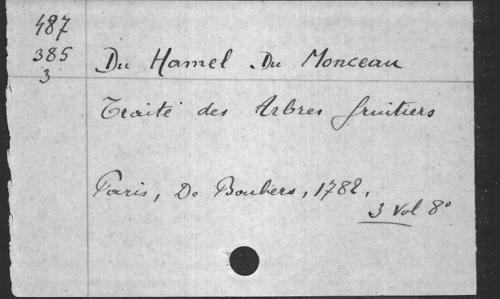 487
385
3
Du Hamel Du Monceau
Traité des Arbres fruitiers
Paris, De Boubers, 1782,
3 Vol 8°